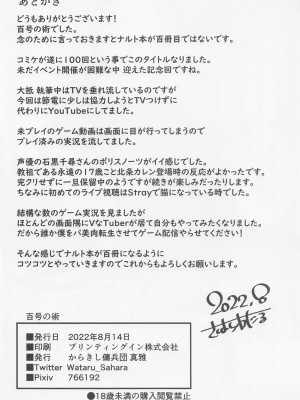 あとがき
どうもありがとうございます!
百号の術でした。
念のために言っておきますとナルト本が百冊目ではないです。
コミケが遂に100回という事でこのタイトルなりました。
未だイベント開催が困難な中 迎えた記念回ですね。
大抵 執筆中はTVを垂れ流しているのですが
今回は節電に少しは協力しようとTVつけずに
代わりにYouTubeにしてました。
未プレイのゲーム動画は画面に目が行ってしまうので
プレイ済みの実況を流してました。
声優の石黒千尋さんのポリスノーツがイイ感じでした。
教祖である永遠の17歳こと北条カレン登場時の反応がよかったです。
完クリせずに一旦保留中のようですが続きが楽しみだったりします。
ちなみに初めてのライブ視聴はStrayで猫になっている時でした。
結構な数のゲーム実況を見ましたが
ほとんどの画面隅にVなTuberが居て自分もやってみたくなりました。
だから誰か僕をバ美肉転生させてゲーム配信やらせてください!
そんな感じでナルト本が百冊になるように
コツコツとやっていきますのでこれからもよろしくお願いします。
2022.8
百号の術
■発行日 2022年8月14日
■印刷 プリンティングイン株式会社
■発行 からきし傭兵団 真雅
■Twitter Wataru_Sahara
■Pixiv 766192
●18歳未満の購入閲覧禁止